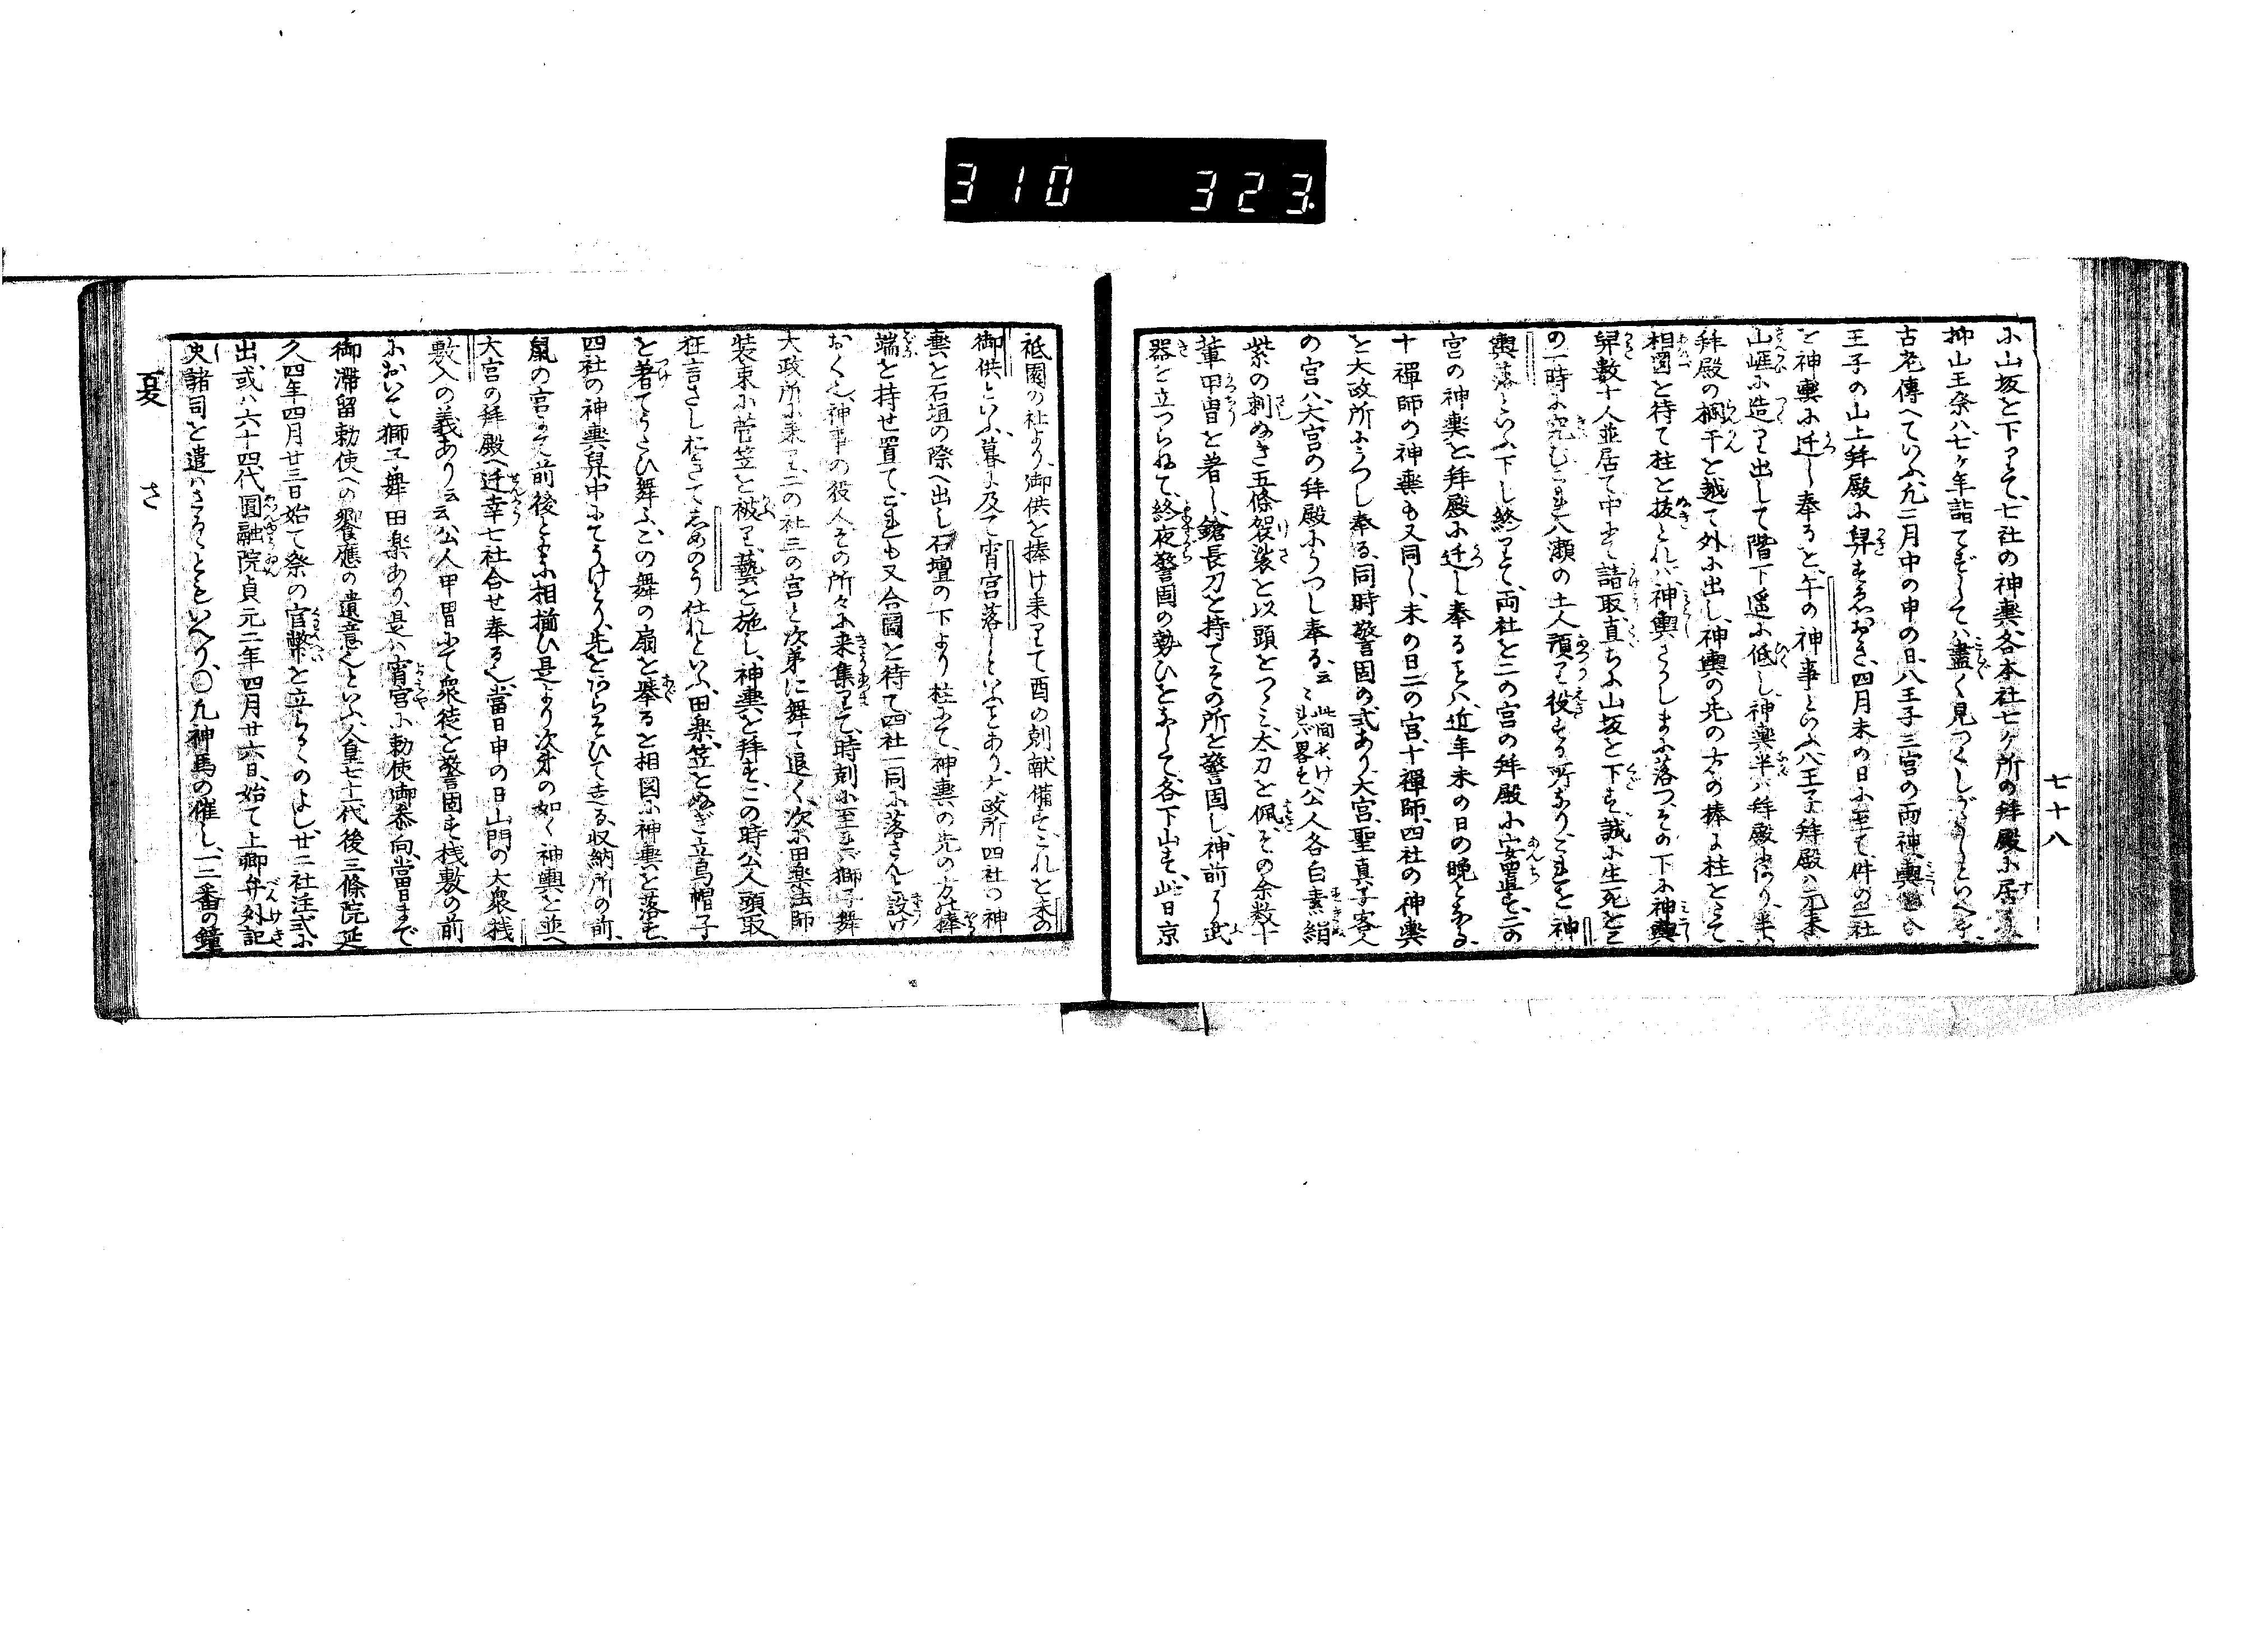 310 323
七十八
小山坂を下りて、七社の神輿、各本社七ヶ所の拜殿に居
抑山王祭ハ七ヶ年詣でずしてハ盡く見つくしがたしといへり、
古老傳へていふ、凡三月中の申の日、八王子三宮の両神輿
王子の山上拜殿に舁すゑおき、四月未の日に至て、件の二社
を神輿に迁し奉るを、午の神事といふ、八王子拜殿ハ元来
山崕に造り出して階下遥に低し、神輿半ハ拜殿
拜殿の欄干を越て外に出し、神輿の先の方の棒に柱をたて
相圖を待て柱を抜とれバ、神輿さかしまに落つ、その下に神輿
舁數十人並居て中にて請取、直ちに山坂を下す、誠に生死を
の一時に究む、これ八瀬の土人預り役する所なり、これを神
輿落といふ、下し終りて、両社を二の宮の拜殿に安置す、二の
宮の神輿を拜殿に迁し奉ることハ、近年未の日の晩となる、
十禪師の神輿も又同し、未の日二の宮、十禪師、四社の神輿
を大政所にうつし奉る、同時警固の式あり、大宮、聖真子、客人
の宮ハ、大宮の拜殿にうつし奉る、云々 此間長けれバ畧す 公人各白素絹
紫の刺ぬき五條袈裟を以頭をつゝみ、太刀を佩、その余数十
輩甲冑を著し、鎗長刀を持てその所を警固し、神前に武
器を立つらねて、終夜警固の勢ひをなして、各下山す、此日京
祗園の社より、御供を捧け来りて酉の剋献備す、これを未の
御供といふ、暮に及て宵宮落しといふことあり、大政所四社の神
輿を石垣の際へ出し、石壇の下より柱にて、神輿の先の方の棒
端を持せ置て、これも又合圖を待て、四社一同に落さんと設け
おく也、神事の役人、その所々に来集りて、時剋に至れバ獅子舞
大政所に来り、二の社三の宮と次第に舞て退く、次に田楽法師
装束に菅笠を被り、藝を施し、神輿を拜す、この時公人頭取、
狂言さし
を著てうたひ舞ふ、この舞の扇を擧るを相図に神輿を落す、
四社の神輿舁中にてうけとり、先をあらそひて走る、収納所の前、
鼠の宮にて前後ともに相揃ひ、是より次第の如く神輿を並べ
大宮の拜殿へ迁幸、七社合せ奉る也、當日申の日山門の大衆桟
敷入の義あり云云、公人甲冑にて衆徒を警固す、桟敷の前
において獅子舞田楽あり、是ハ宵宮に勅使御参向、當日まで
御滞留勅使への饗應の遺意也といふ、人皇七十一代後三條院延
久四年四月廿三日始て祭の官幣を立らるゝのよし、廿二社注式に
出、或ハ六十四代圓融院貞元二年四月廿六日、始て上卿弁外記
史諸司を遣ハさるゝともいへり、〇凡神馬の催し、一二番の鐘
夏
さ